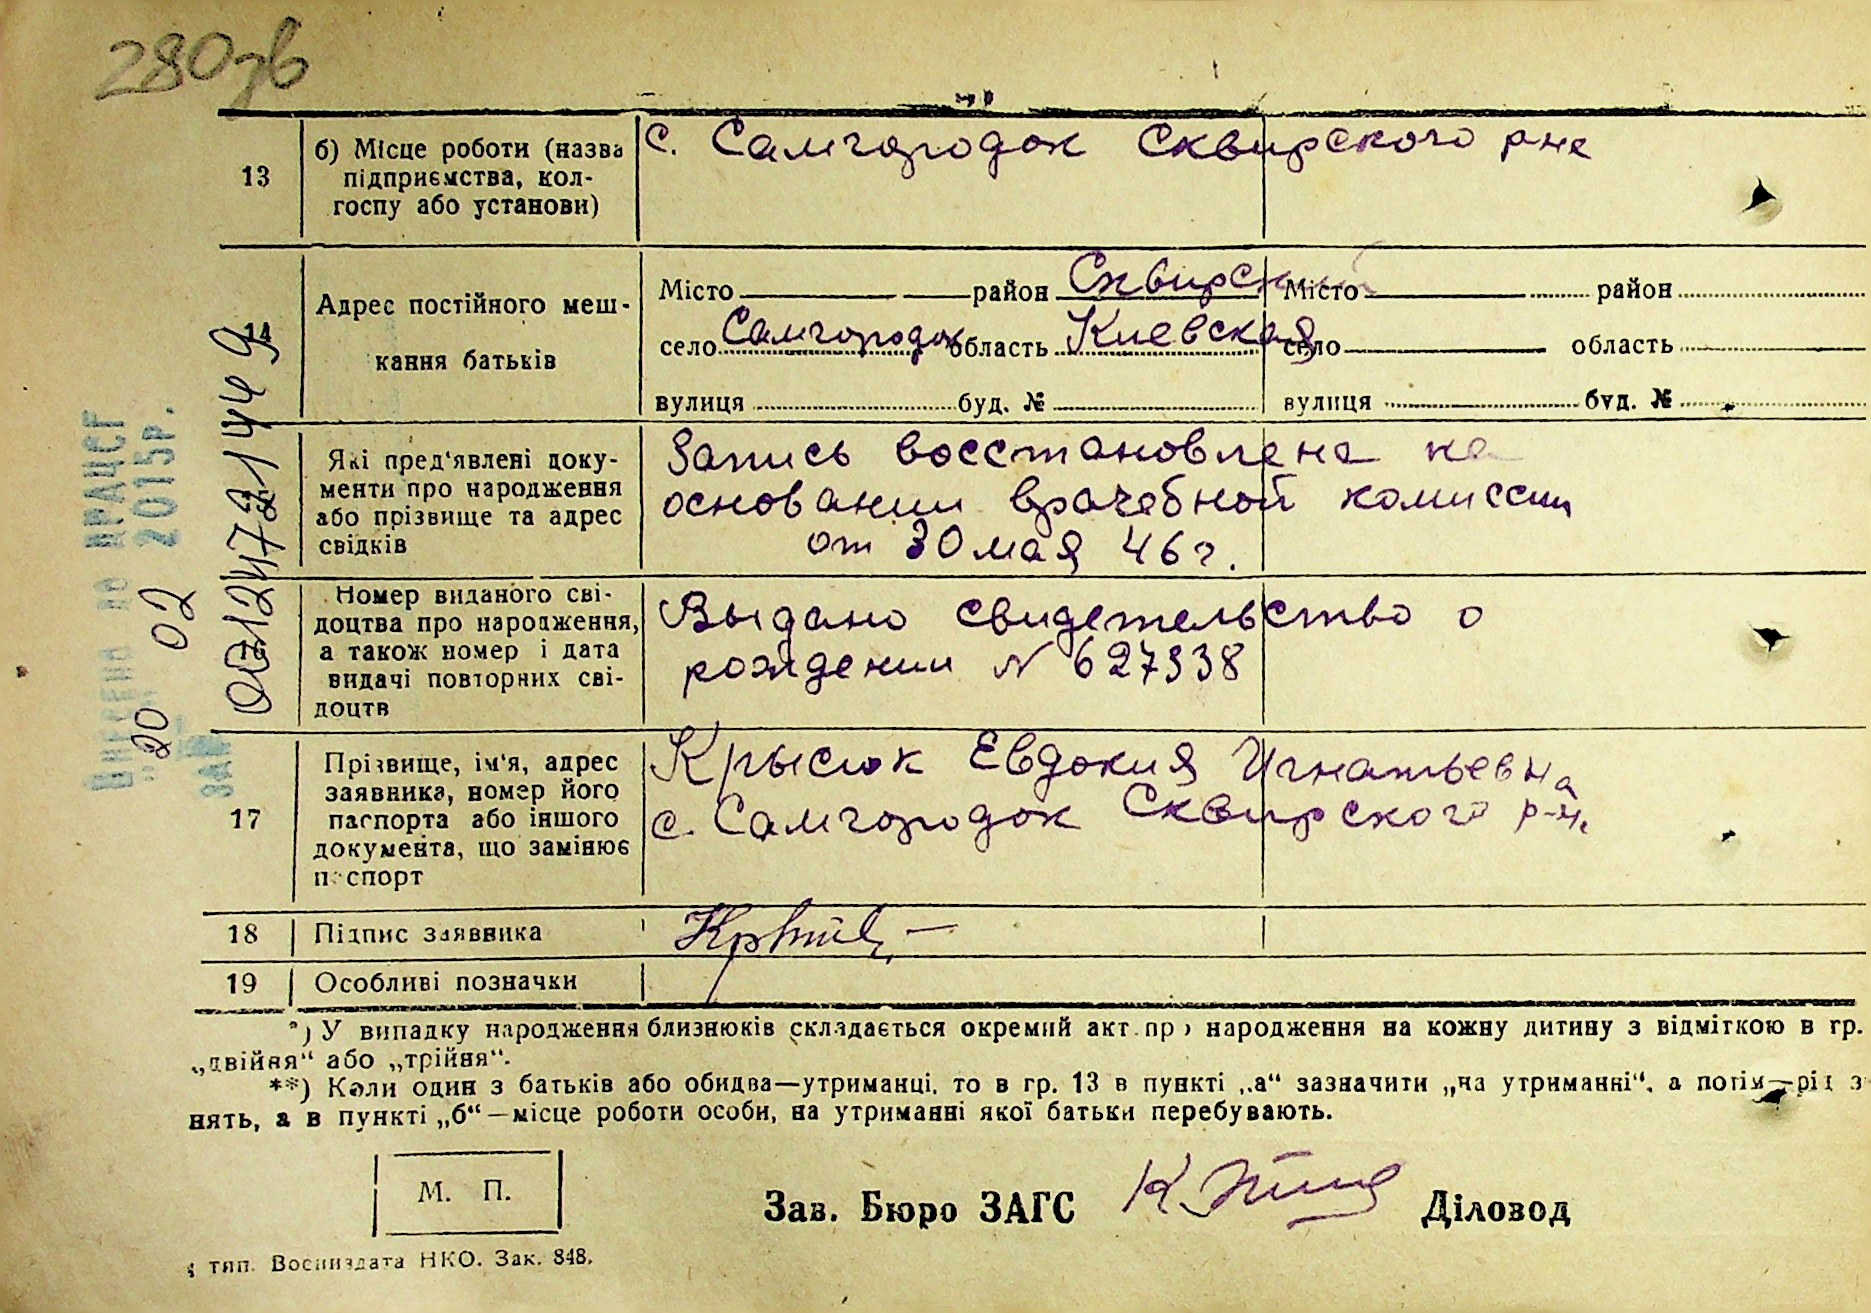 280зв
13
б) Місце роботи (назва
підприємства, кол-
госпу або установи)
с. Самгородок Сквирского р-на
14
Адрес постійного меш-
кання батьків
Місто район Сквирский
село Самгородок область Киевская
вулиця буд. №
Місто район
село область
вулиця буд. №
Які пред'явлені доку-
менти про народження
або прізвище та адрес
свідків
Запись восстановлена на
основании врачебной комиссии
от 30 мая 46 г.
Номер виданого сві-
доцтва про народження,
а також номер і дата
видачі повторних сві-
доцтв
Выдано свидетельство о
рождении № 627338
17
Прізвище, ім'я, адрес
заявника, номер його
паспорта або іншого
документа, що замінює
паспорт
Крысюк Евдокия Игнатьевна
с. Самгородок Сквирского р-на
18
Підпис заявника
19
Особливі позначки
*) У випадку народження близнюків складається окремий акт про народження на кожну дитину з відміткою в гр.
„двійня“ або „трійня“.
**) Коли один з батьків або обидва—утриманці, то в гр. 13 в пункті „а“ зазначити „на утриманні“, а потім—рід з
нять, а в пункті „б“—місце роботи особи, на утриманні якої батьки перебувають.
М. П.
Зав. Бюро ЗАГС
Діловод
тип. Воениздата НКО. Зак. 848.
ДРАЦСГ
20 02 2015р.